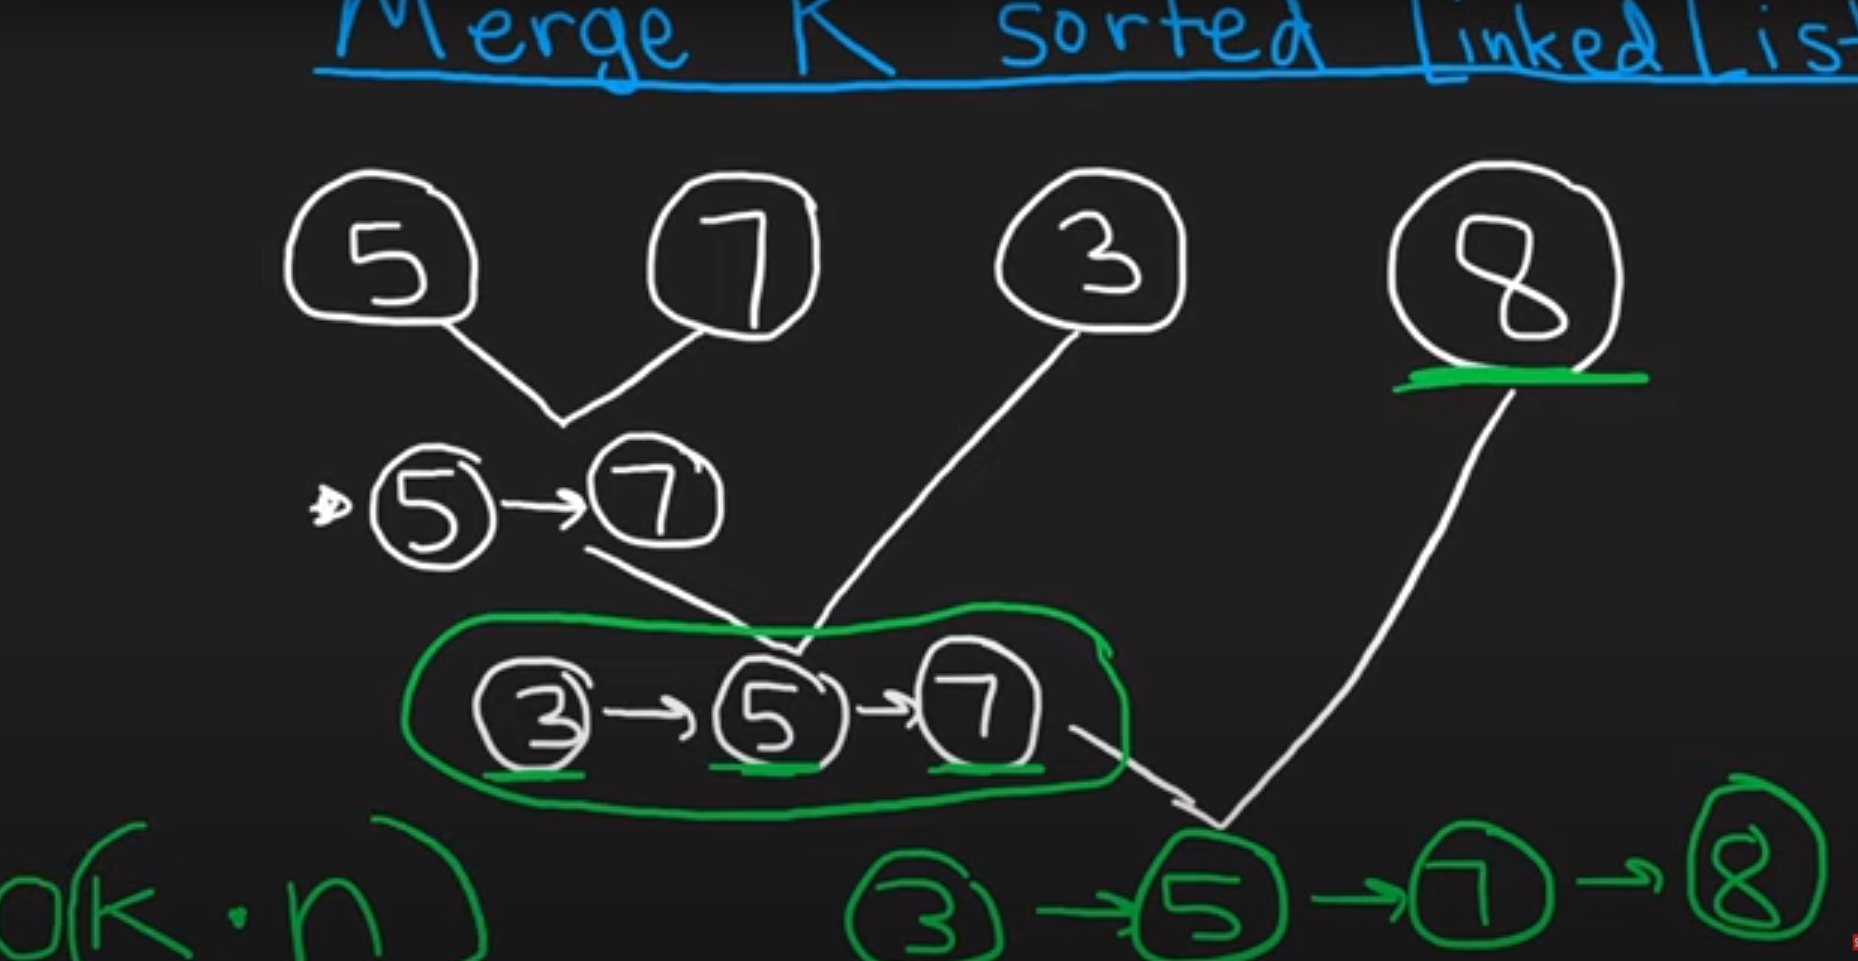 Merge K Sorted Linked List
5 7 3 8
5 → 7
3 → 5 → 7
O(k · n)
3 → 5 → 7 → 8